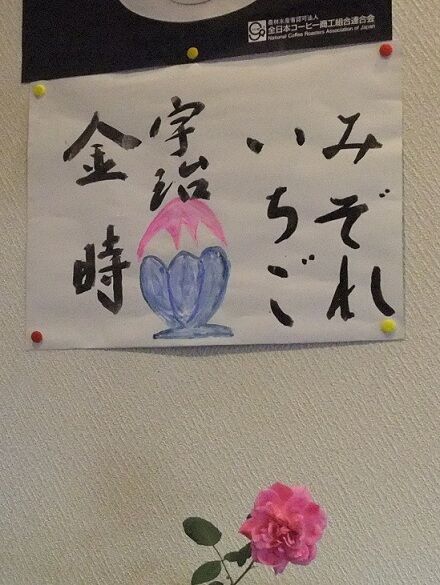 農林水産省認可法人
全日本コーヒー商工組合連合会
National Coffee Roasters Association of Japan
みぞれ
いちご
宇治
金時